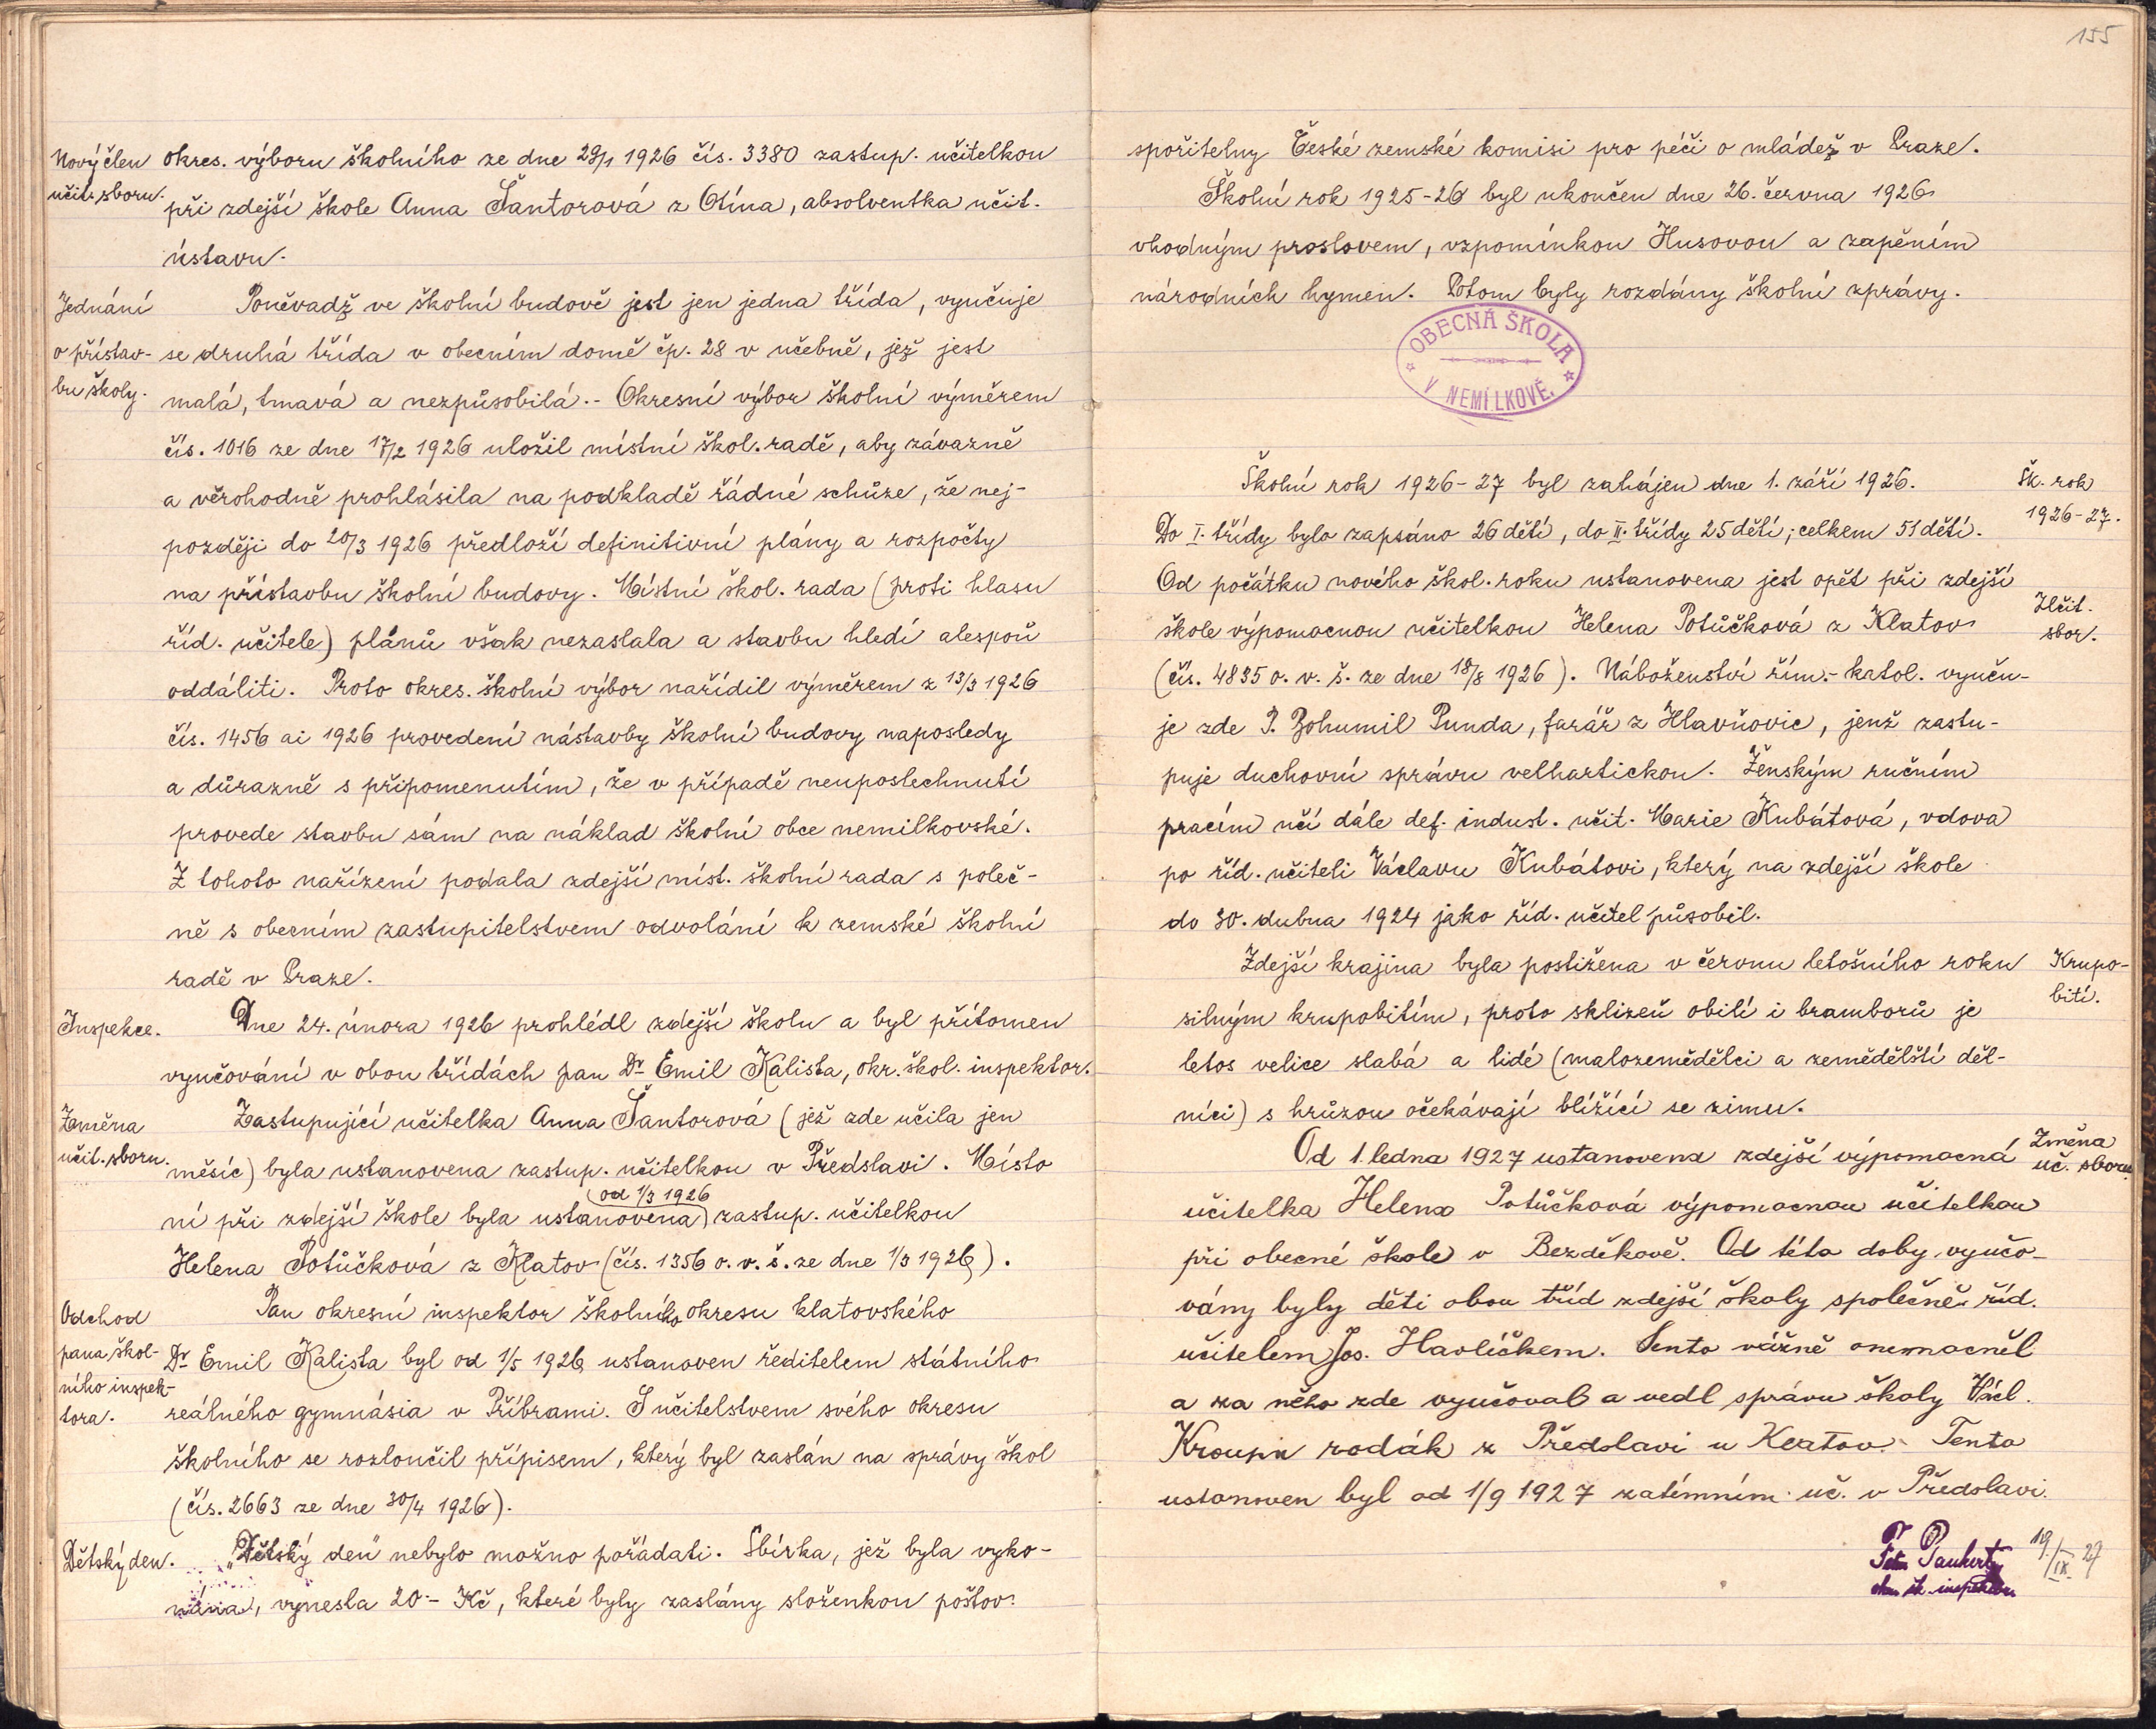 Nový člen
učit. sboru.
okres. výboru školního ze dne 29/1 1926 čís. 3380 zastup. učitelkou
při zdejší škole Anna Šantorová z Otína, absolventka učit.
ústavu.
Jednání
o přístav-
bu školy.
Poněvadž ve školní budově jest jen jedna třída, vyučuje
se druhá třída v obecním domě čp. 28 v učebně, jež jest
malá, tmavá a nezpůsobilá. - Okresní výbor školní výměrem
čís. 1016 ze dne 17/2 1926 uložil místní škol. radě, aby závazně
a věrohodně prohlásila na podkladě řádné schůze, že nej-
později do 20/3 1926 předloží definitivní plány a rozpočty
na přístavbu školní budovy. Místní škol. rada (proti hlasu
říd. učitele) plánů však nezaslala a stavbu hledí alespoň
oddáliti. Proto okres. školní výbor nařídil výměrem z 13/3 1926
čís. 1456 ai 1926 provedení nástavby školní budovy naposledy
a důrazně s připomenutím, že v případě neuposlechnutí
provede stavbu sám na náklad školní obce nemilkovské.
Z tohoto nařízení podala zdejší míst. školní rada s poleč-
ně s obecním zastupitelstvem odvolání k zemské školní
radě v Praze.
Inspekce.
Dne 24. února 1926 prohlédl zdejší školu a byl přítomen
vyučování v obou třídách pan Dr Emil Kalista, okr. škol. inspektor.
Změna
učit. sboru.
Zastupující učitelka Anna Šantorová (jež zde učila jen
měsíc) byla ustanovena zastup. učitelkou v Předslavi. Místo
od 1/3 1926
ní při zdejší škole byla ustanovena zastup. učitelkou
Helena Potůčková z Klatov (čís. 1356 o. v. š. ze dne 1/3 1926).
Odchod
pana škol-
ního inspek-
tora.
Pan okresní inspektor školního okresu klatovského
Dr Emil Kalista byl od 1/5 1926 ustanoven ředitelem státního
reálného gymnásia v Příbrami. S učitelstvem svého okresu
školního se rozloučil přípisem, který byl zaslán na správy škol
(čís. 2663 ze dne 30/4 1926).
Dětský den.
„Dětský den" nebylo možno pořádati. Sbírka, jež byla vyko-
nána, vynesla 20.- Kč, které byly zaslány složenkou poštov.
155
spořitelny České zemské komisi pro péči o mládež v Praze.
Školní rok 1925-26 byl ukončen dne 26. června 1926
vhodným proslovem, vzpomínkou Husovou a zapěním
národních hymen. Potom byly rozdány školní zprávy.
OBECNÁ ŠKOLA
V NEMILKOVĚ.
Šk. rok
1926-27.
Školní rok 1926-27 byl zahájen dne 1. září 1926.
Do I. třídy bylo zapsáno 26 dětí, do II. třídy 25 dětí; celkem 51 dětí.
Učit.
sbor.
Od počátku nového škol. roku ustanovena jest opět při zdejší
škole výpomocnou učitelkou Helena Potůčková z Klatov
(čís. 4835 o. v. š. ze dne 18/8 1926). Náboženství řím.-katol. vyuču-
je zde P. Bohumil Punda, farář z Hlavňovic, jenž zastu-
puje duchovní správu velhartickou. Ženským ručním
pracím učí dále def. indust. učit. Marie Kubátová, vdova
po říd. učiteli Václavu Kubátovi, který na zdejší škole
do 30. dubna 1924 jako říd. učitel působil.
Krupo-
bití.
Zdejší krajina byla postižena v červnu letošního roku
silným krupobitím, proto sklizeň obilí i bramborů je
letos velice slabá a lidé (malozemědělci a zemědělští děl-
níci) s hrůzou očekávají blížící se zimu.
Změna
uč. sboru.
Od 1. ledna 1927 ustanovena zdejší výpomocná
učitelka Helena Potůčková výpomocnou učitelkou
při obecné škole v Bezděkově. Od této doby vyučo-
vány byly děti obou tříd zdejší školy společně říd.
učitelem Jos. Havlíčkem. Tento vážně onemocněl
a za něho zde vyučoval a vedl správu školy Václ.
Kroupa rodák z Předslavi u Klatov. Tento
ustanoven byl od 1/9 1927 zatímním uč. v Předslavi.
19/IX. 27
inspektor